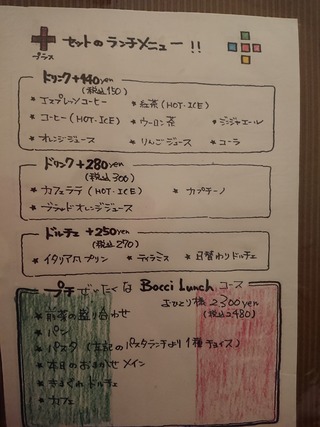 セットのランチメニュー !!
プラス
ドリンク +140yen
(税込150)
* エスプレッソコーヒー * 紅茶 (HOT・ICE)
* コーヒー (HOT・ICE) * ウーロン茶 * ジンジャエール
* オレンジジュース * りんごジュース * コーラ
ドリンク +280yen
(税込300)
* カフェラテ (HOT・ICE) * カプチーノ
* ブラッドオレンジジュース
ドルチェ +250yen
(税込270)
* イタリアンプリン * ティラミス * 日替わりドルチェ
プチぜいたくな Bocci Lunch コース
おひとり様 2,300yen
(税込2480)
* 前菜の盛り合わせ
* パン
* パスタ (左記のパスタランチより1種チョイス)
* 本日のおまかせ メイン
* きまぐれ ドルチェ
* カフェ